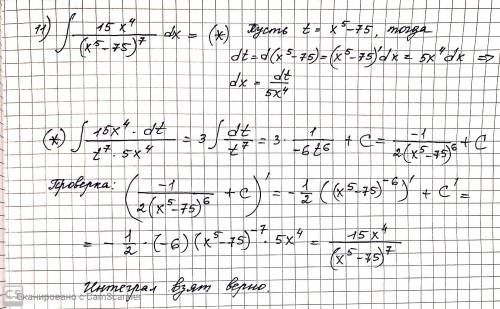 11) ∫ 15x⁴/(x⁵-75)⁷ dx = (*) Пусть t = x⁵-75, тогда
dt = d(x⁵-75) = (x⁵-75)'dx = 5x⁴dx ⇒
dx = dt/5x⁴
(*) ∫ 15x⁴·dt/t⁷·5x⁴ = 3∫ dt/t⁷ = 3· 1/-6t⁶ + C = -1/2(x⁵-75)⁶ + C
Проверка: (-1/2(x⁵-75)⁶ + C)' = -1/2((x⁵-75)⁻⁶)' + C' =
= -1/2·(-6)(x⁵-75)⁻⁷·5x⁴ = 15x⁴/(x⁵-75)⁷
Интеграл взят верно.
CS Сканировано с CamScanner